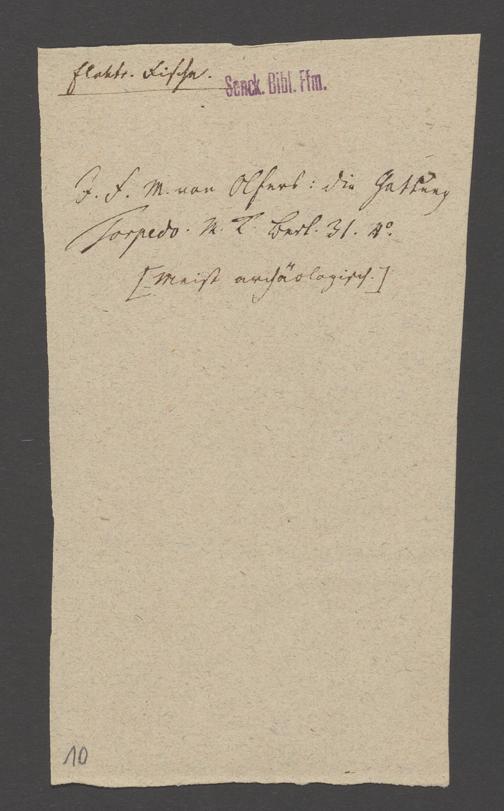 elektr. Fische.
Senck. Bibl. Ffm.
J. F. M. von Olfers: die Gattung
Torpedo. M. T. Berl. 31. 4º.
[Meist archäologisch.]
10